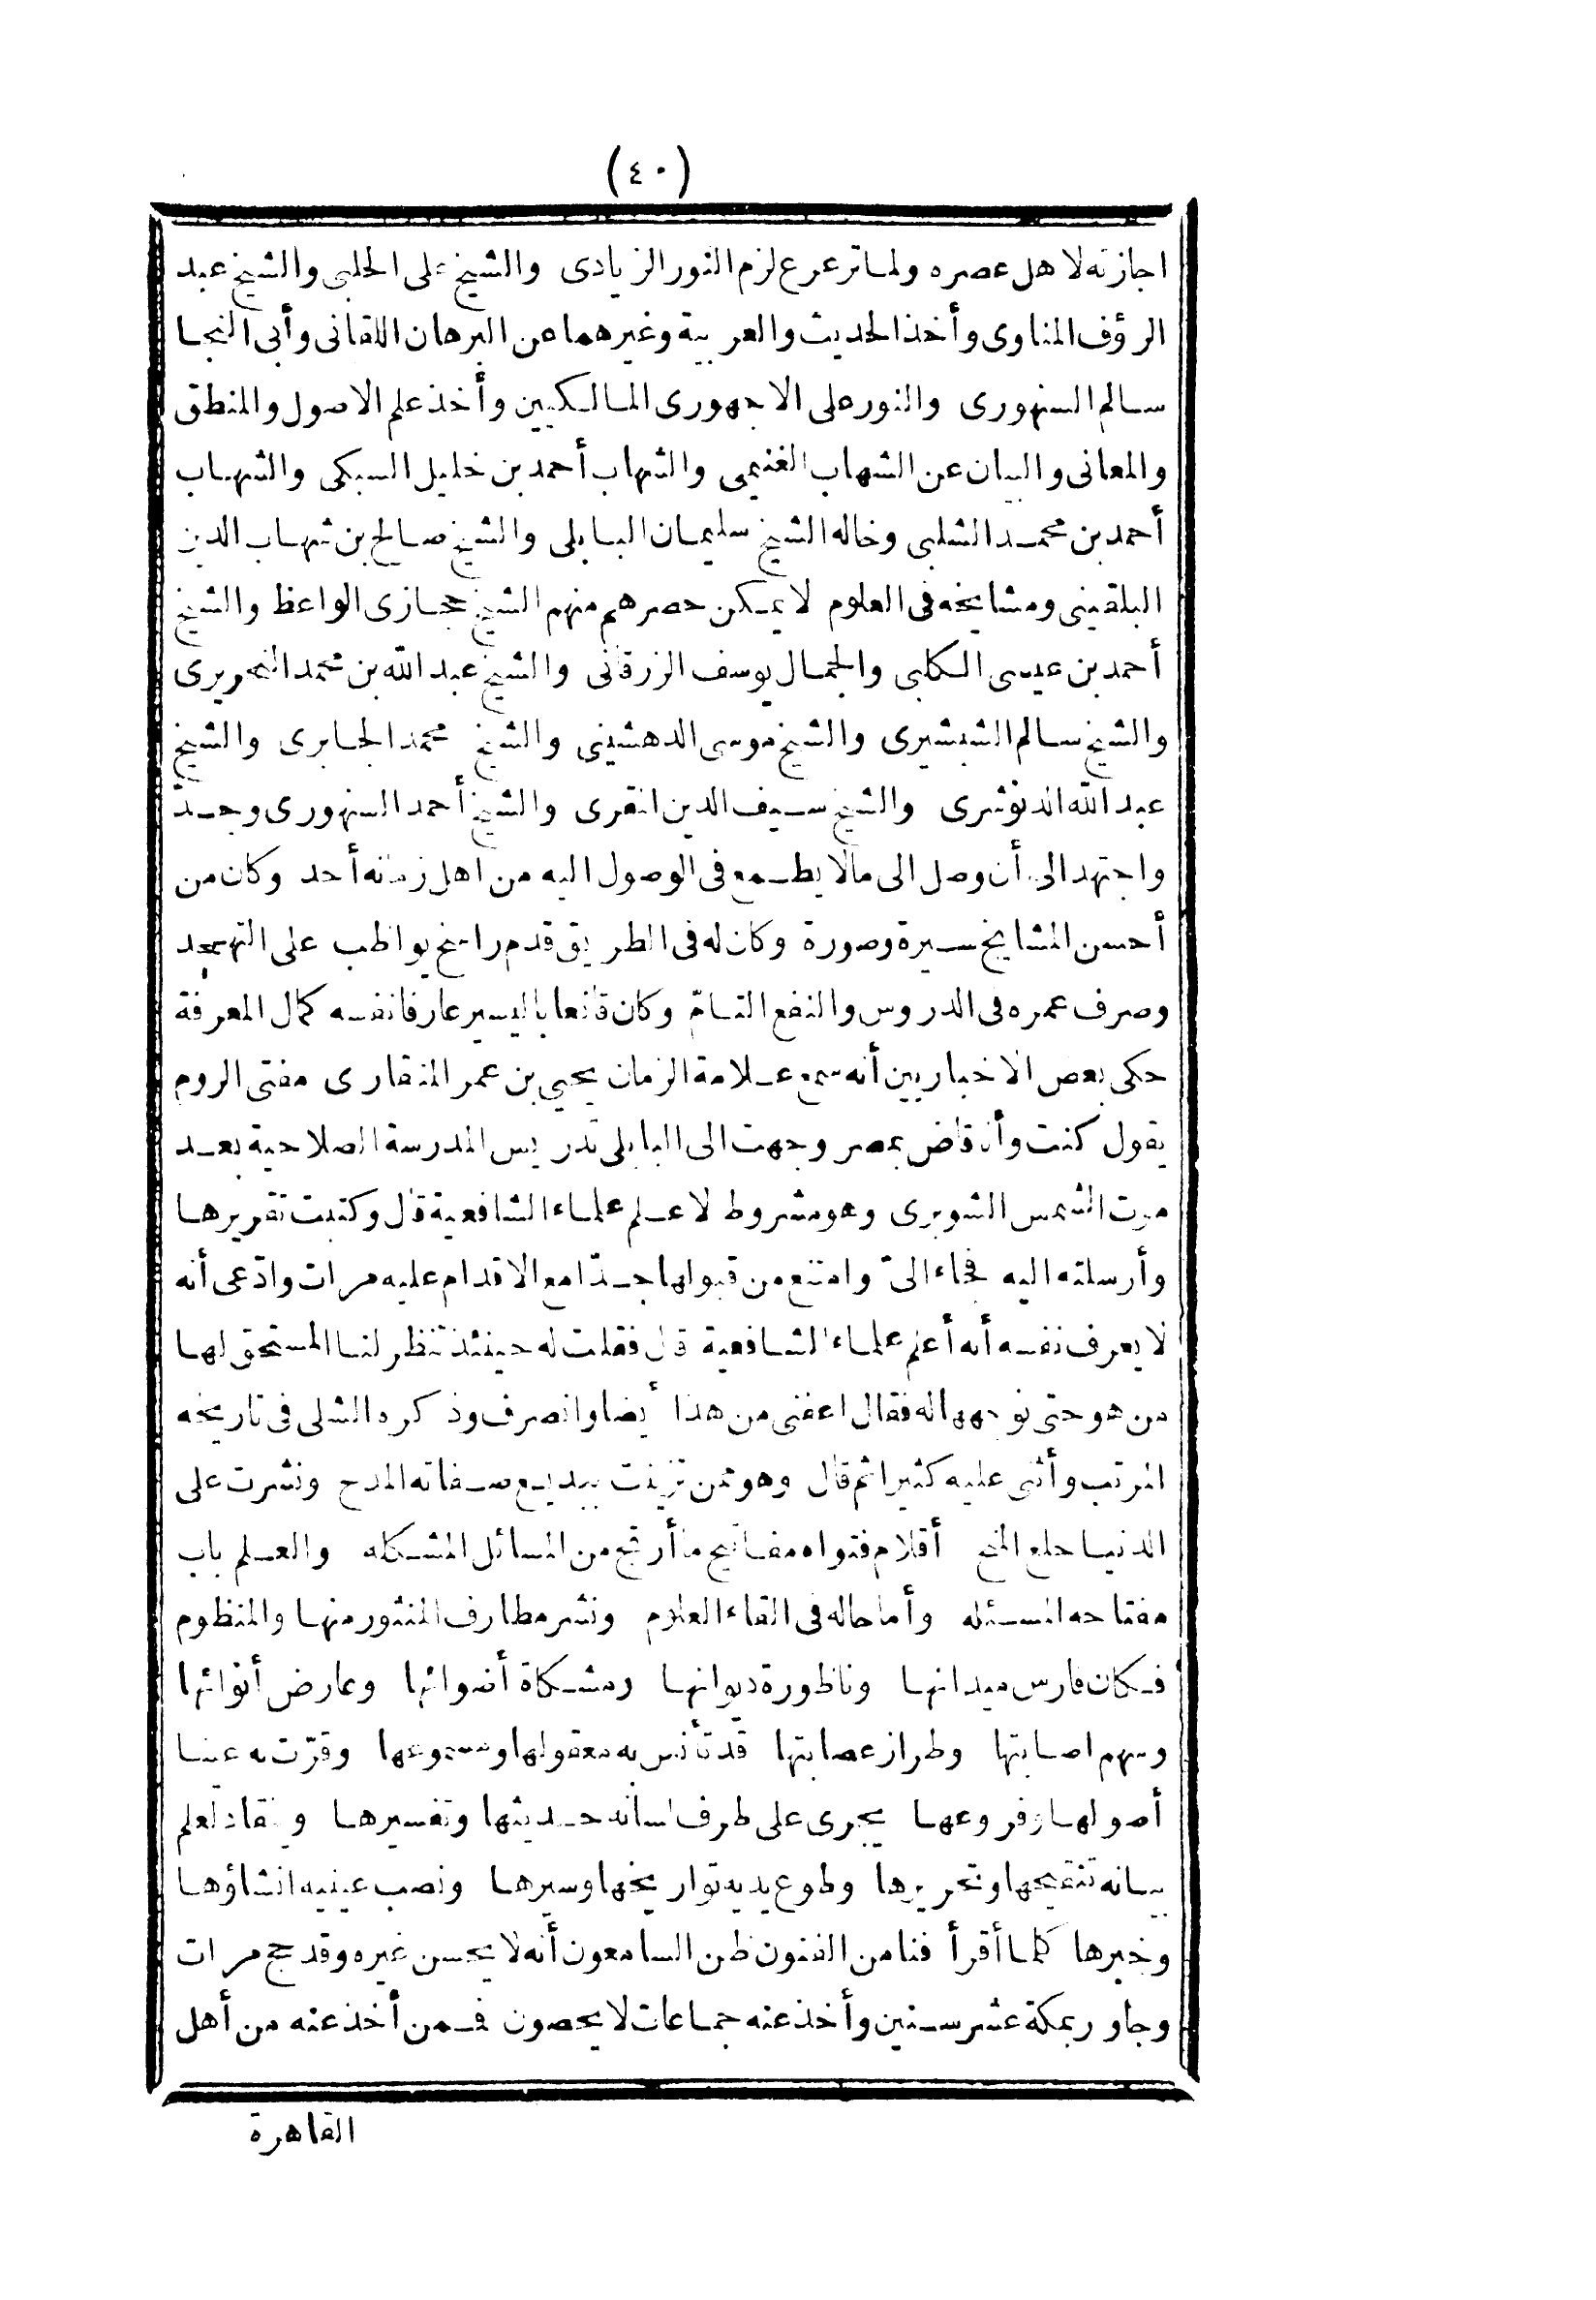 (٤٠)
اجازته لاهل عصره ولما ترعرع لزم النور الزيادى والشيخ على الحلبى والشيخ عبد
الرؤف المناوى وأخذ الحديث والعربية وغيرهما عن البرهان اللقانى وأبى النجا
سالم السنهورى والنور على الاجهورى المالكيين وأخذ علم الاصول والمنطق
والمعانى والبيان عن الشهاب الغنيمى والشهاب أحمد بن خليل السبكى والشهاب
أحمد بن محمد الشلبى وخاله الشيخ سليمان البابلى والشيخ صالح بن شهاب الدين
البلقينى ومشايخه فى العلوم لا يمكن حصرهم منهم الشيخ حجازى الواعظ والشيخ
أحمد بن عيسى الكلبى والجمال يوسف الزرقانى والشيخ عبد الله بن محمد النحريرى
والشيخ سالم الشبشيرى والشيخ موسى الدهشينى والشيخ محمد الجابرى والشيخ
عبد الله الدنوشرى والشيخ سيف الدين المقرى والشيخ أحمد السنهورى وجدّ
واجتهد الى أن وصل الى مالا يطمع فى الوصول اليه من اهل زمانه أحد وكان من
أحسن المشايخ سيرة وصورة وكان له فى الطريق قدم راسخ يواظب على التهجد
وصرف عمره فى الدروس والنفع التامّ وكان قانعا باليسير عارفا نفسه كمال المعرفة
حكى بعض الاخباريين أنه سمع علامة الزمان يحيى بن عمر المنقارى مفتى الروم
يقول كنت وأنا قاض بمصر وجهت الى البابلى تدريس المدرسة الصلاحية بعد
موت الشمس الشوبرى وهو مشروط لاعلم علماء الشافعية قال وكتبت تقريرها
وأرسلته اليه فجاء الىّ وامتنع من قبولها جدّا مع الاقدام عليه مرات وادّعى أنه
لا يعرف نفسه أنه أعلم علماء الشافعية قال فقلت له حينئذ تنظر لنا المستحق لها
من هو حتى نوجهها له فقال اعفنى من هذا أيضا وانصرف وذكره الشلى فى تاريخه
المرتب وأثنى عليه كثيرا ثم قال وهو ممن تزينت ببديع صفاته المدح ونشرت على
الدنيا خلع المنح أقلام فتواه مفاتيح ما أرتج من المسائل المشكله والعلم باب
مفتاحه المسئله وأما حاله فى القاء العلوم ونشر مطارف المنثور منها والمنظوم
فكان فارس ميدانها وناظورة ديوانها ومشكاة أضوائها وعارض أنوائها
وسهم اصابتها وطراز عصابتها قد تأنس به معقولها ومسموعها وقرّت به عينا
أصولها وفروعها يجرى على طرف لسانه حديثها وتفسيرها وينقاد لعلم
بيانه تنقيحها وتحريرها وطوع يديه تواريخها وسيرها ونصب عينيه انشاؤها
وخبرها كلما أقرأ فنا من الفنون ظن السامعون أنه لا يحسن غيره وقد حج مرات
وجاور بمكة عشر سنين وأخذ عنه جماعات لا يحصون فمن أخذ عنه من أهل
القاهرة